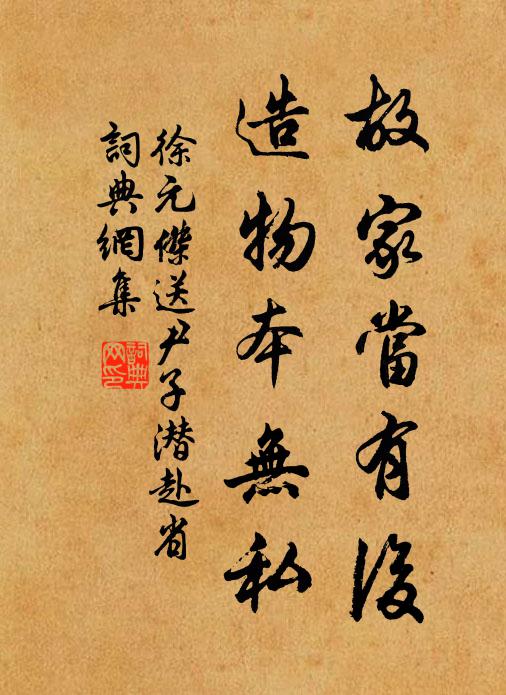 故家當有後
造物本無私
徐元傑送尹子潜赴省
詞典網集
詞典网印